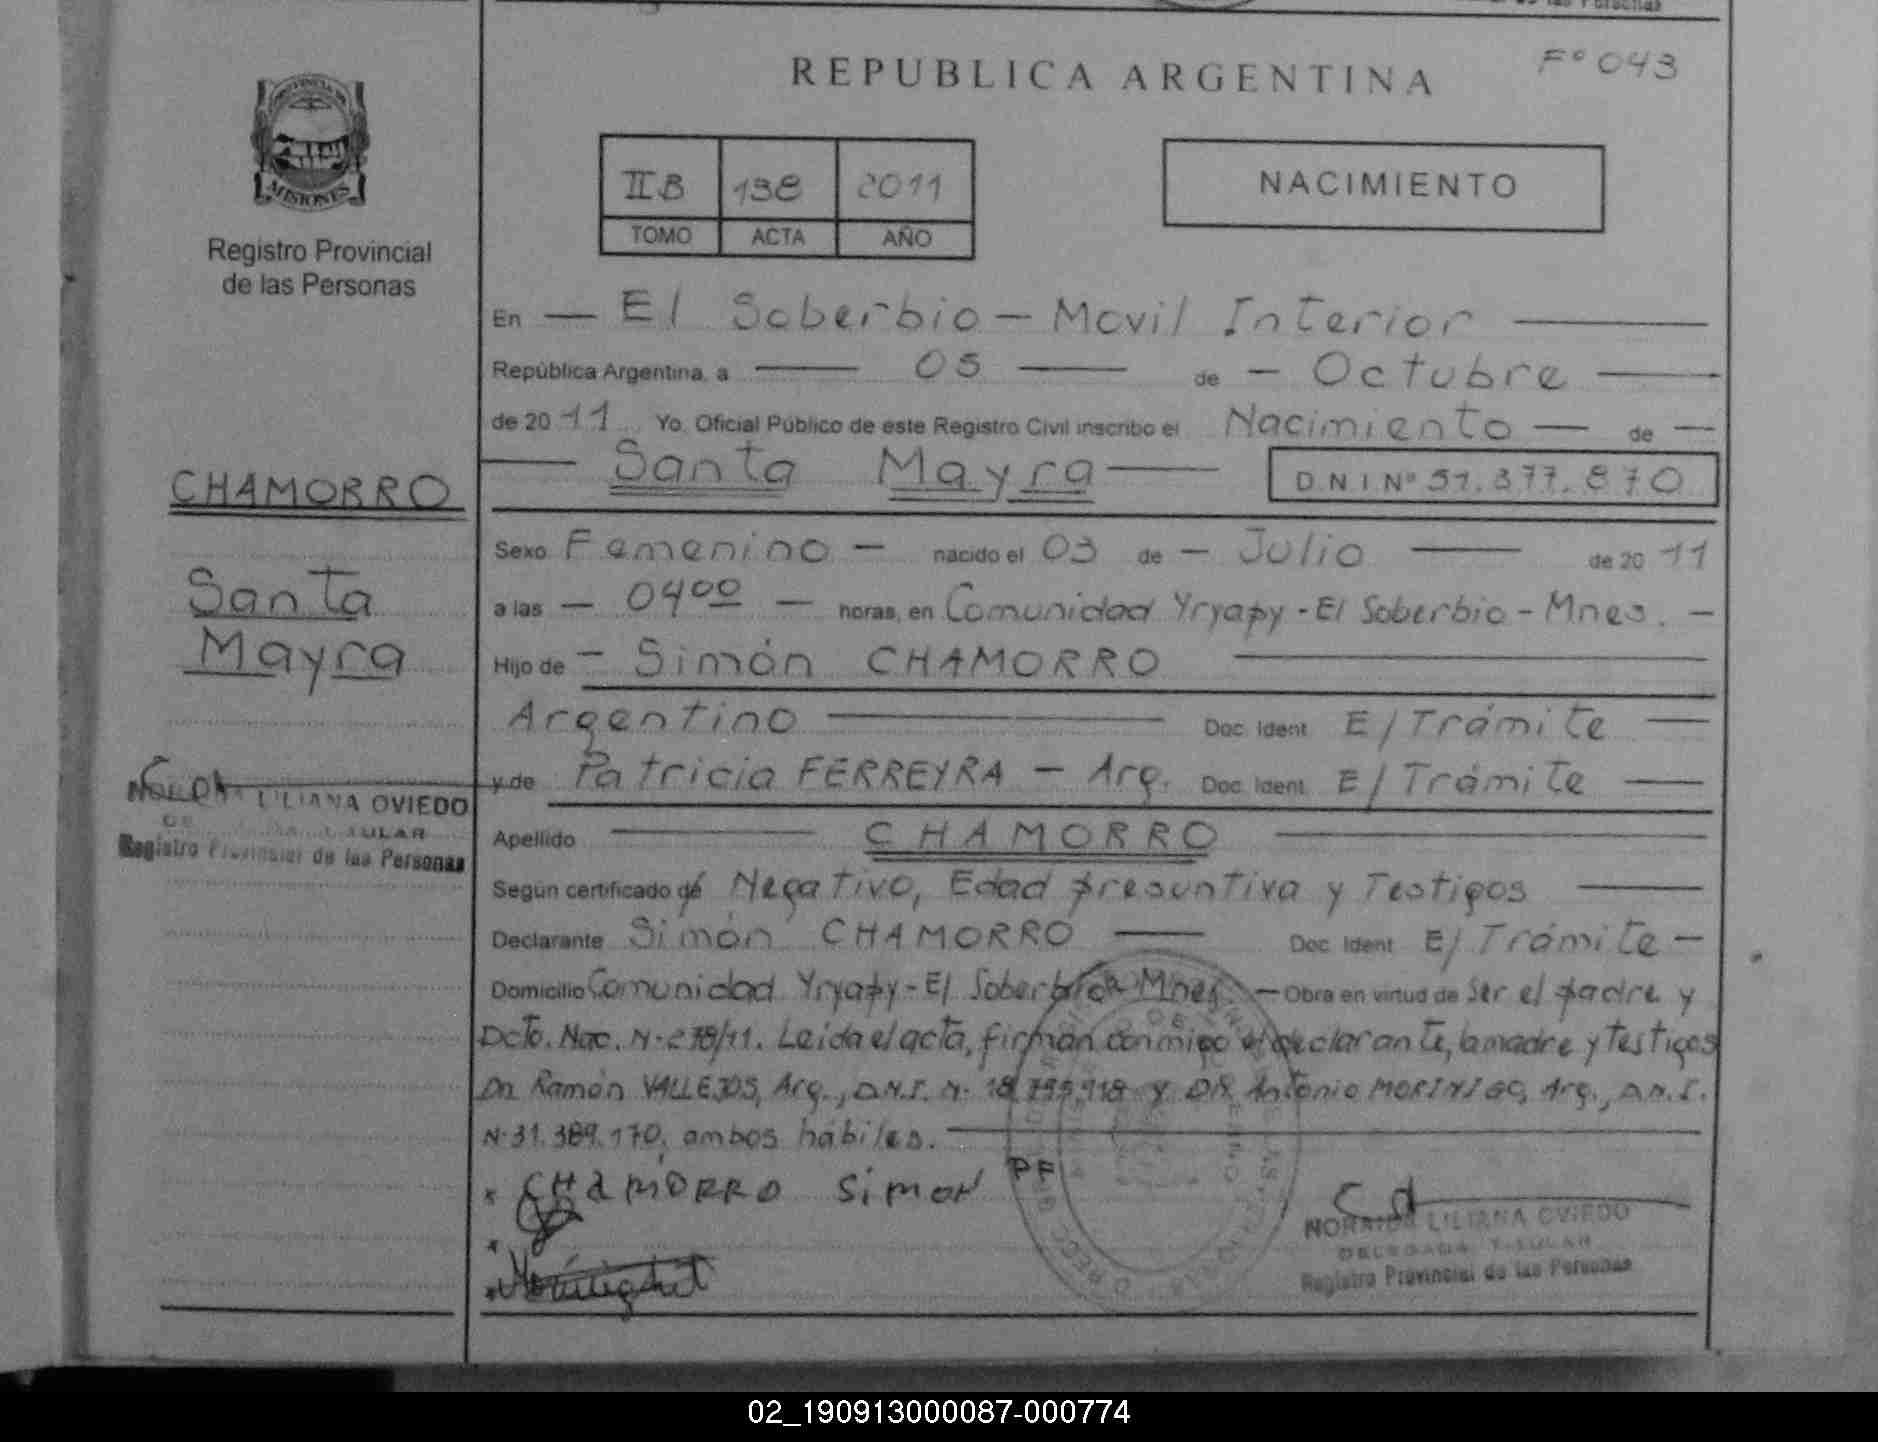 REPUBLICA ARGENTINA
Fº 043
PROVINCIA DE
MISIONES
Registro Provincial
de las Personas
II B 138 2011
TOMO ACTA AÑO
NACIMIENTO
En — El Soberbio - Movil Interior —
República Argentina, a — 05 — de - Octubre —
de 20 11 Yo, Oficial Público de este Registro Civil inscribo el Nacimiento — de —
— Santa Mayra — D N I Nº 51.377.870
CHAMORRO
Santa
Mayra
Sexo Femenino - nacido el 03 de - Julio — de 20 11
a las - 04⁰⁰ - horas, en Comunidad Yryapy - El Soberbio - Mnes. -
Hijo de - Simón CHAMORRO —
Argentino — Doc. Ident. E/Trámite —
y de Patricia FERREYRA - Arg. Doc. Ident. E/Trámite —
LILIANA OVIEDO
Registro Provincial de las Personas
Apellido — CHAMORRO —
Según certificado de Negativo, Edad presuntiva y Testigos —
Declarante Simón CHAMORRO — Doc. Ident. E/Trámite -
Domicilio Comunidad Yryapy - El Soberbio Mnes. - Obra en virtud de Ser el padre y
Dcto. Nac. N· 278/11. Leida el acta, firman conmigo el declarante, la madre y testigos
Dn Ramón VALLEJOS, Arg., D.N.I. N· 18.799.918 y Dn Antonio MORINIGO, Arg., D.N.I.
N· 31.389.170, ambos hábiles. —
* CHAMORRO Simon PF
NORAIDA LILIANA OVIEDO
DELEGADA TITULAR
Registro Provincial de las Personas
02_190913000087-000774